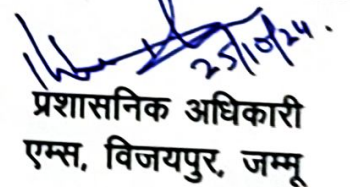 25/10/24.
प्रशासनिक अधिकारी
एम्स, विजयपुर, जम्मू